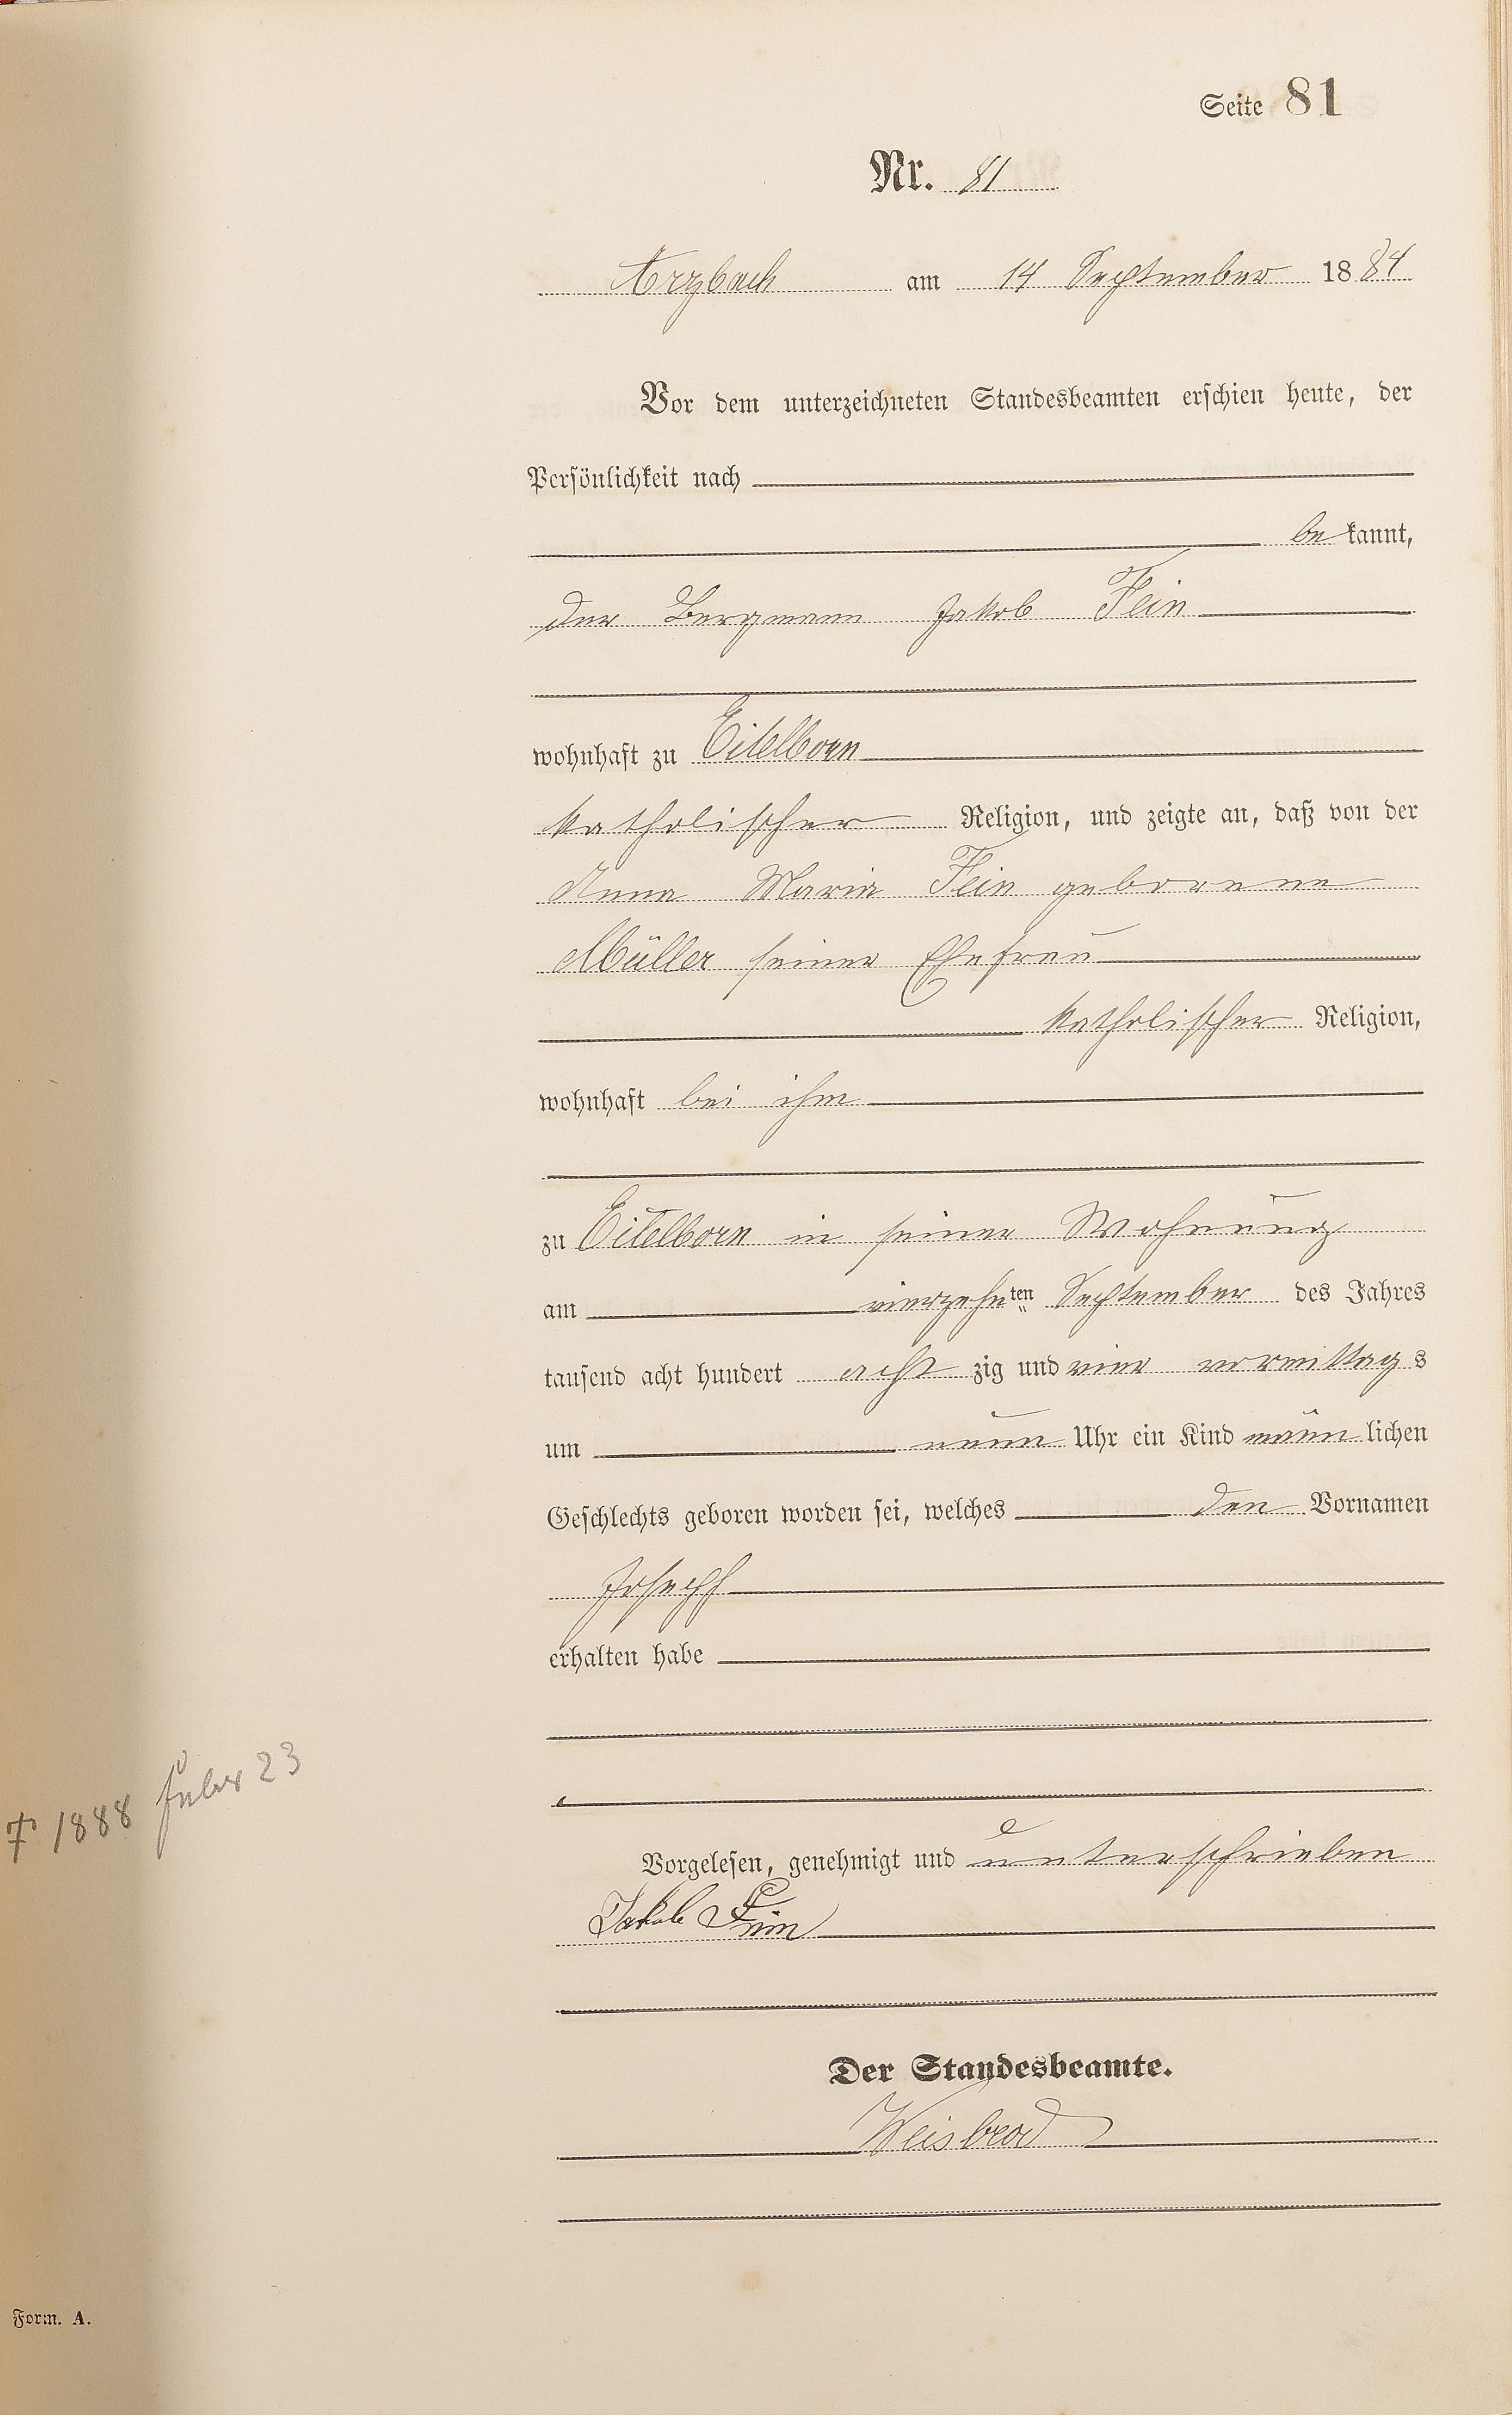 Seite 81
Nr. 81
Arzbach am 14 September 1884
Vor dem unterzeichneten Standesbeamten erschien heute, der
Persönlichkeit nach
bekannt,
der Bergmann Jakob Fein
wohnhaft zu Eitelborn
katholischer Religion, und zeigte an, daß von der
Anna Maria Fein geborene
Müller seiner Ehefrau
katholischer Religion,
wohnhaft bei ihm
zu Eitelborn in seiner Wohnung
am vierzehnten September des Jahres
tausend acht hundert acht zig und vier vormittags
um neun Uhr ein Kind männlichen
Geschlechts geboren worden sei, welches den Vornamen
Joseph
erhalten habe
† 1888 23
Vorgelesen, genehmigt und unterschrieben
Jakob Fein
Der Standesbeamte.
Weisbrod
Form. A.